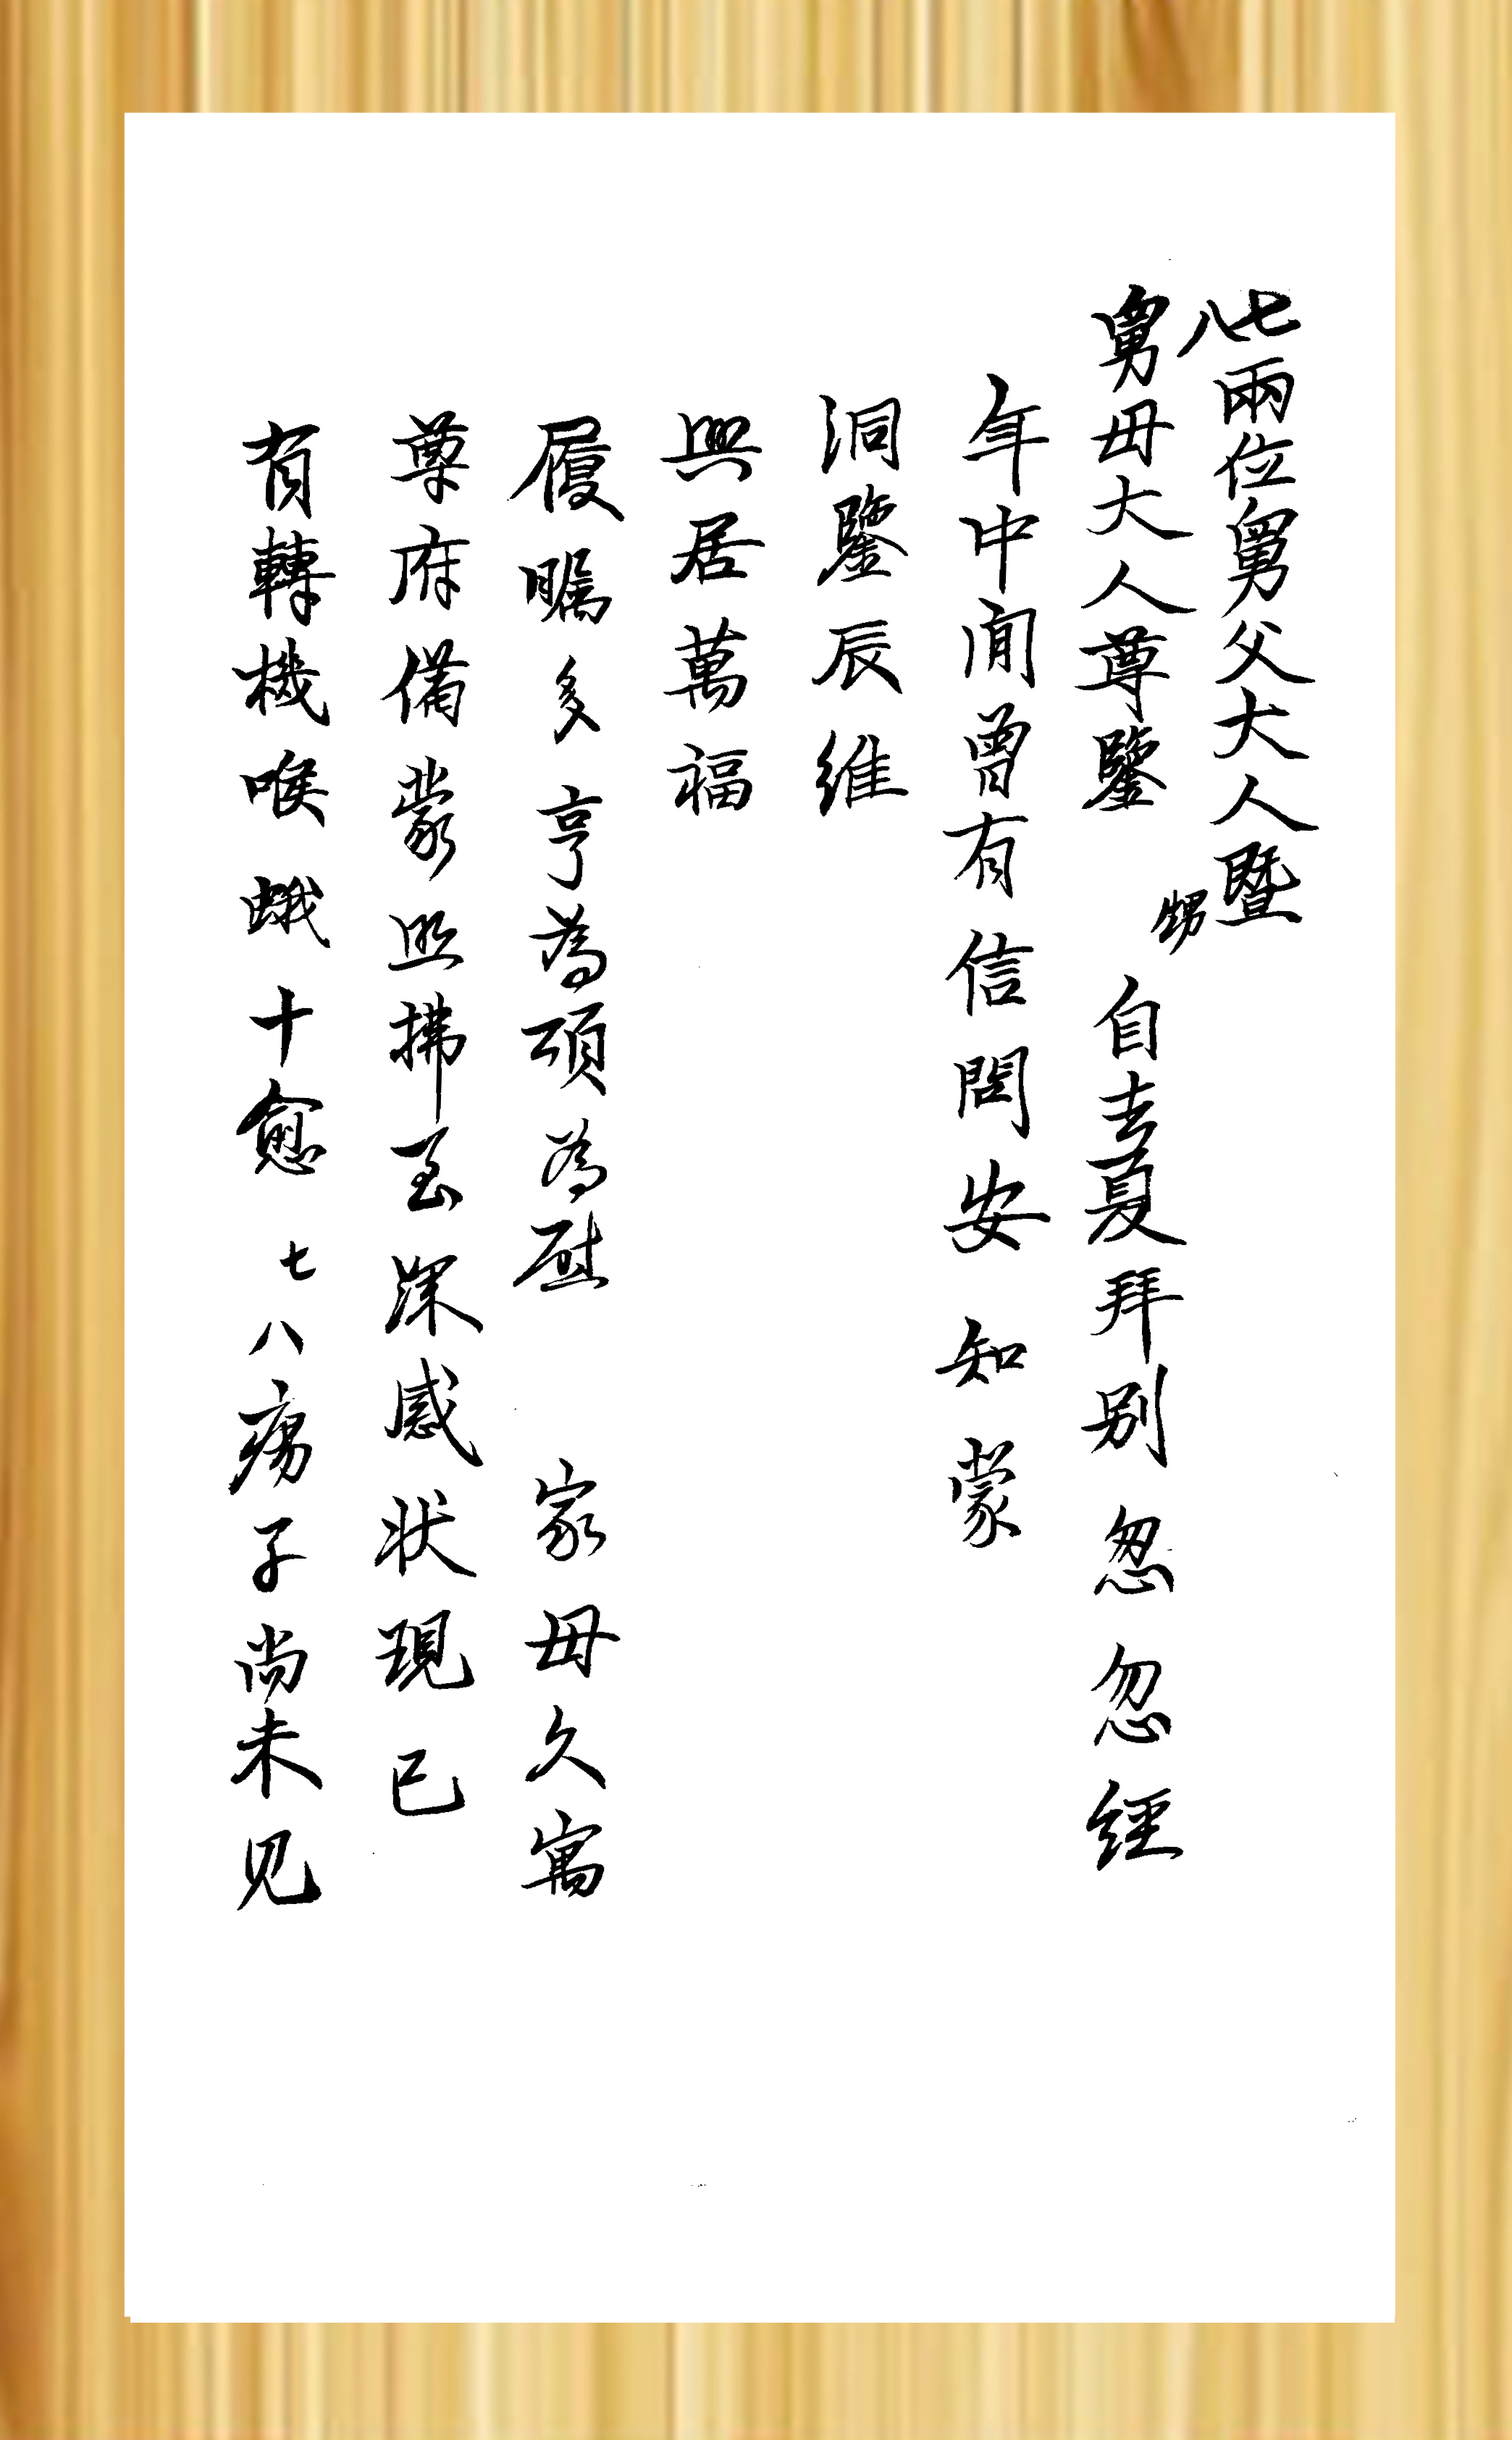 七八兩位舅父大人暨
舅母大人尊鑒 甥 自去夏拜別忽忽經
年中間曾有信問安知蒙
洞鑒辰維
興居萬福
履矚多亨為頌為慰 家母久寓
尊府備蒙照拂至深感狀現已
有轉機喉蛾十愈七八瘍子尚未見